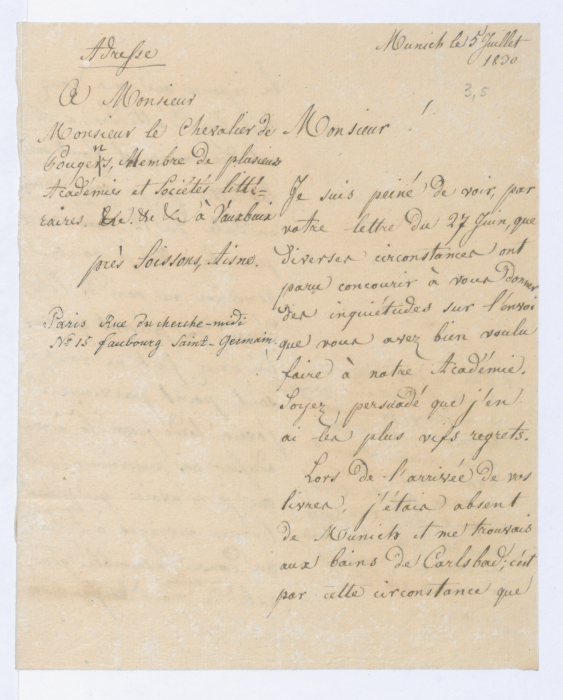 Munich le 5 Juillet
1830
3,5
Adresse
A Monsieur
Monsieur le Chevalier de
Pougens, Membre de plusieurs
Académies et Sociétés litté=
raires &c. &c &c à Vauxbuin
près Soissons, Aisne.
Paris Rue du cherche-midi
N° 15 faubourg Saint-Germain.
Monsieur!
Je suis peiné de voir, par
votre lettre du 27 Juin, que
diverses circonstances ont
paru concourir à vous donner
des inquiétudes sur l'envoi
que vous avez bien voulu
faire à notre Académie.
Soyez persuadé que j'en
ai les plus vifs regrets.
Lors de l'arrivée de vos
livres, j'étais absent
de Munich et me trouvais
aux bains de Carlsbad; c'est
par cette circonstance que